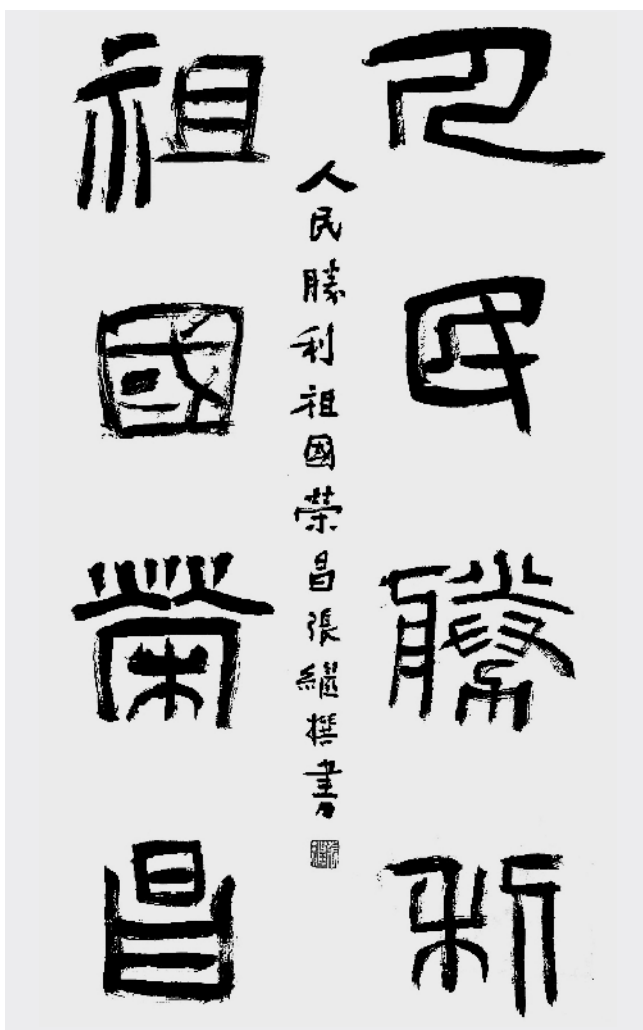 人民勝利
祖國榮昌
人民勝利祖國榮昌張繼撰書